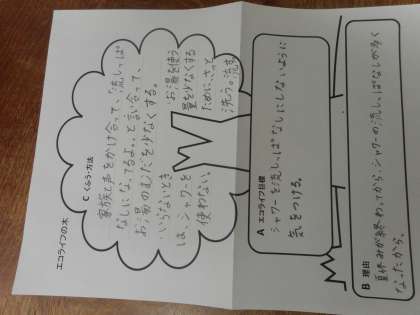 エコライフの木
C くふう・方法
家族と声をかけ合って、「流しっぱ
なしになってるよ。」と言い合って、
お湯のむだを少なくする。
いらないとき
は、シャワーを
使わない。
お湯を使う
量を少なくする
ために、さっと
洗う。流す。
A エコライフ目標
シャワーを流しっぱなしにしないように
気をつける。
B 理由
夏休みが終わってから、シャワーの流しっぱなしが多く
なったから。